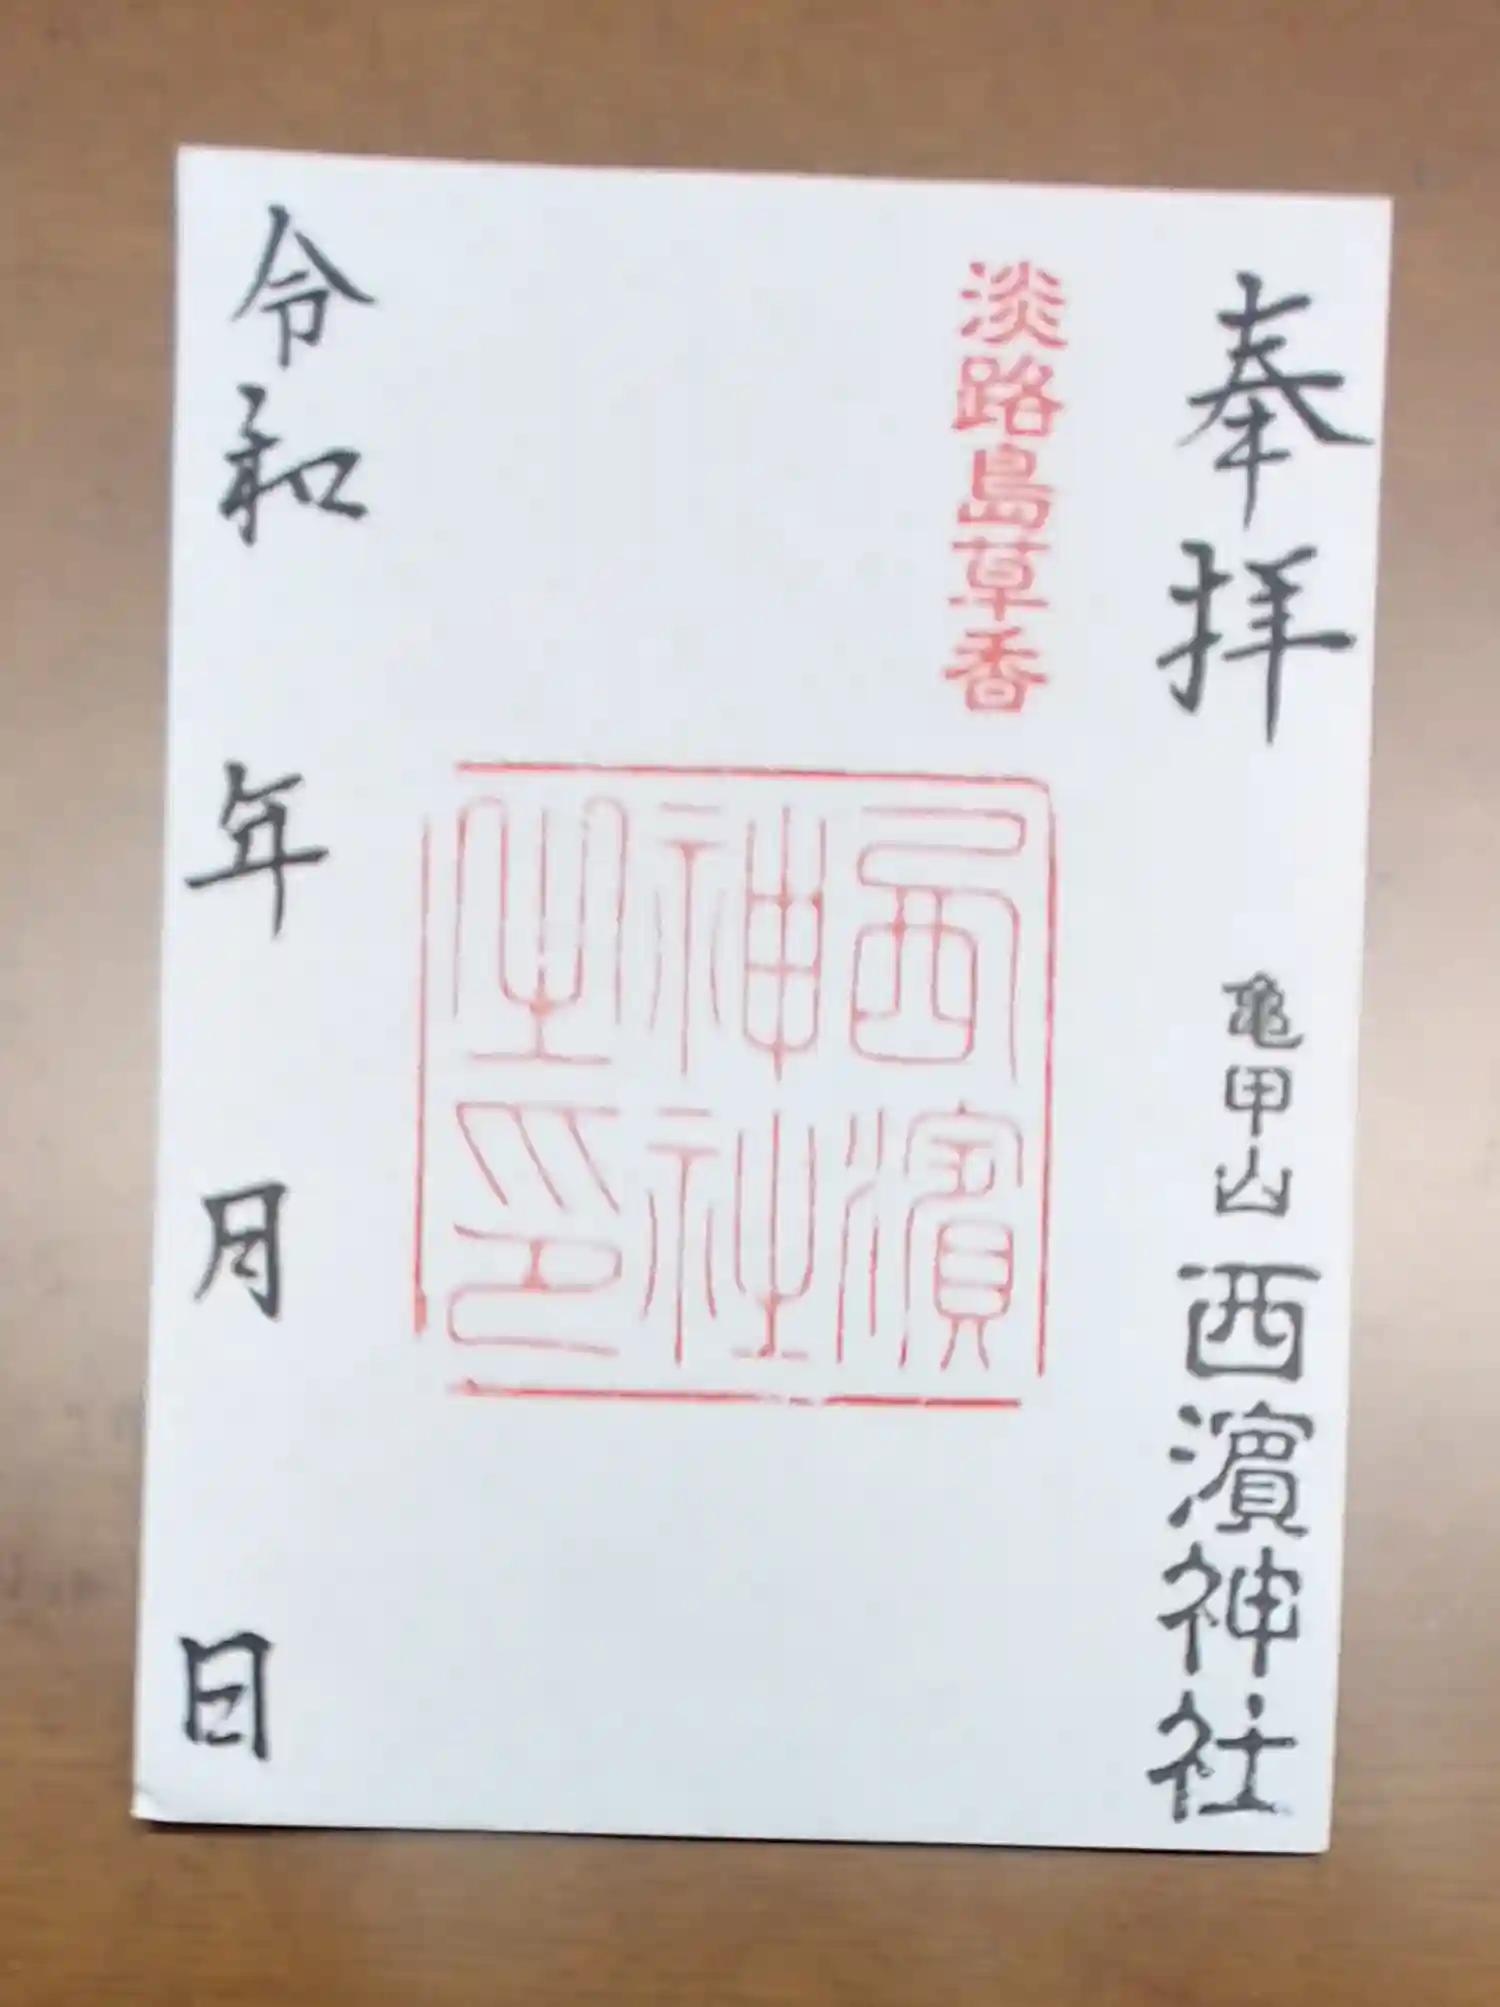 奉拝
亀甲山西濱神社
淡路島草香
西濱
神社
之印
令和 年 月 日